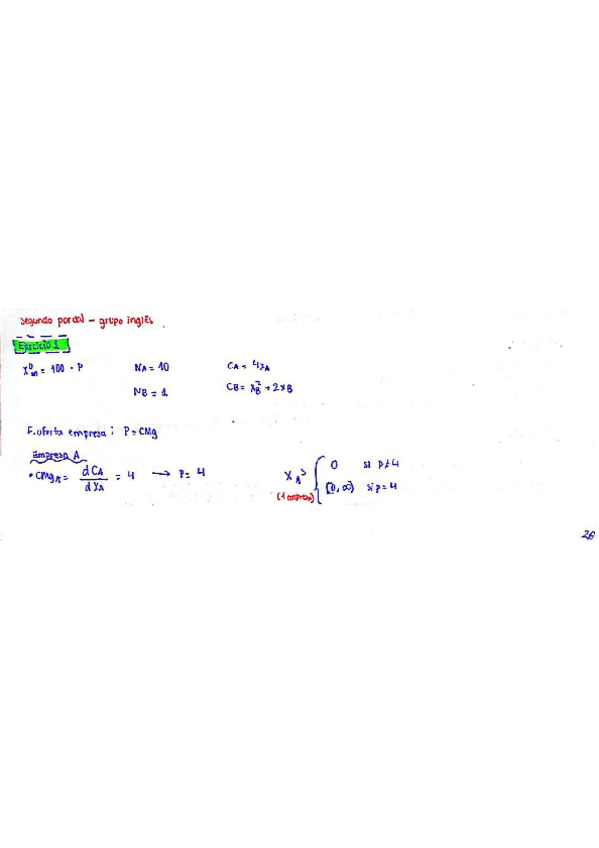 Segundo parcial - grupo inglés.
Ejercicio 1
X^D_m = 100 - P NA = 10 CA = 4XA
NB = 1 CB = XB^2 + 2XB
F. oferta empresa: P = CMg
Empresa A
• CMgA = dCA / dXA = 4 → P = 4 XA^S { 0 si p≠4
(1 empresa) [0, ∞) si p = 4
26